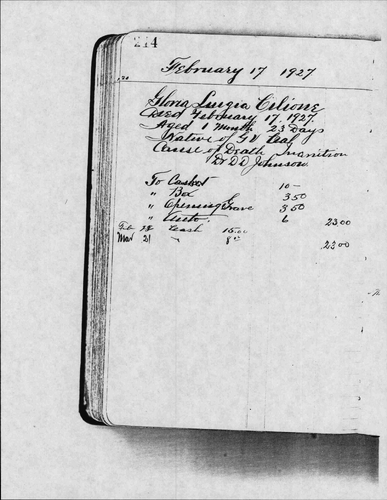 214
February 17 1927
Gloria Luigia Cilione
Died February 17, 1927.
Aged 1 Month 23 Days
Native of G.V. Cal
Cause of Death Inanition
Dr D D Johnson
To Casket 10-
" Box 3 50
" Opening Grave 3 50
" Auto. 6 23 00
Feb 28 Cash 15.00
Mar 21 " 8 00 23 00